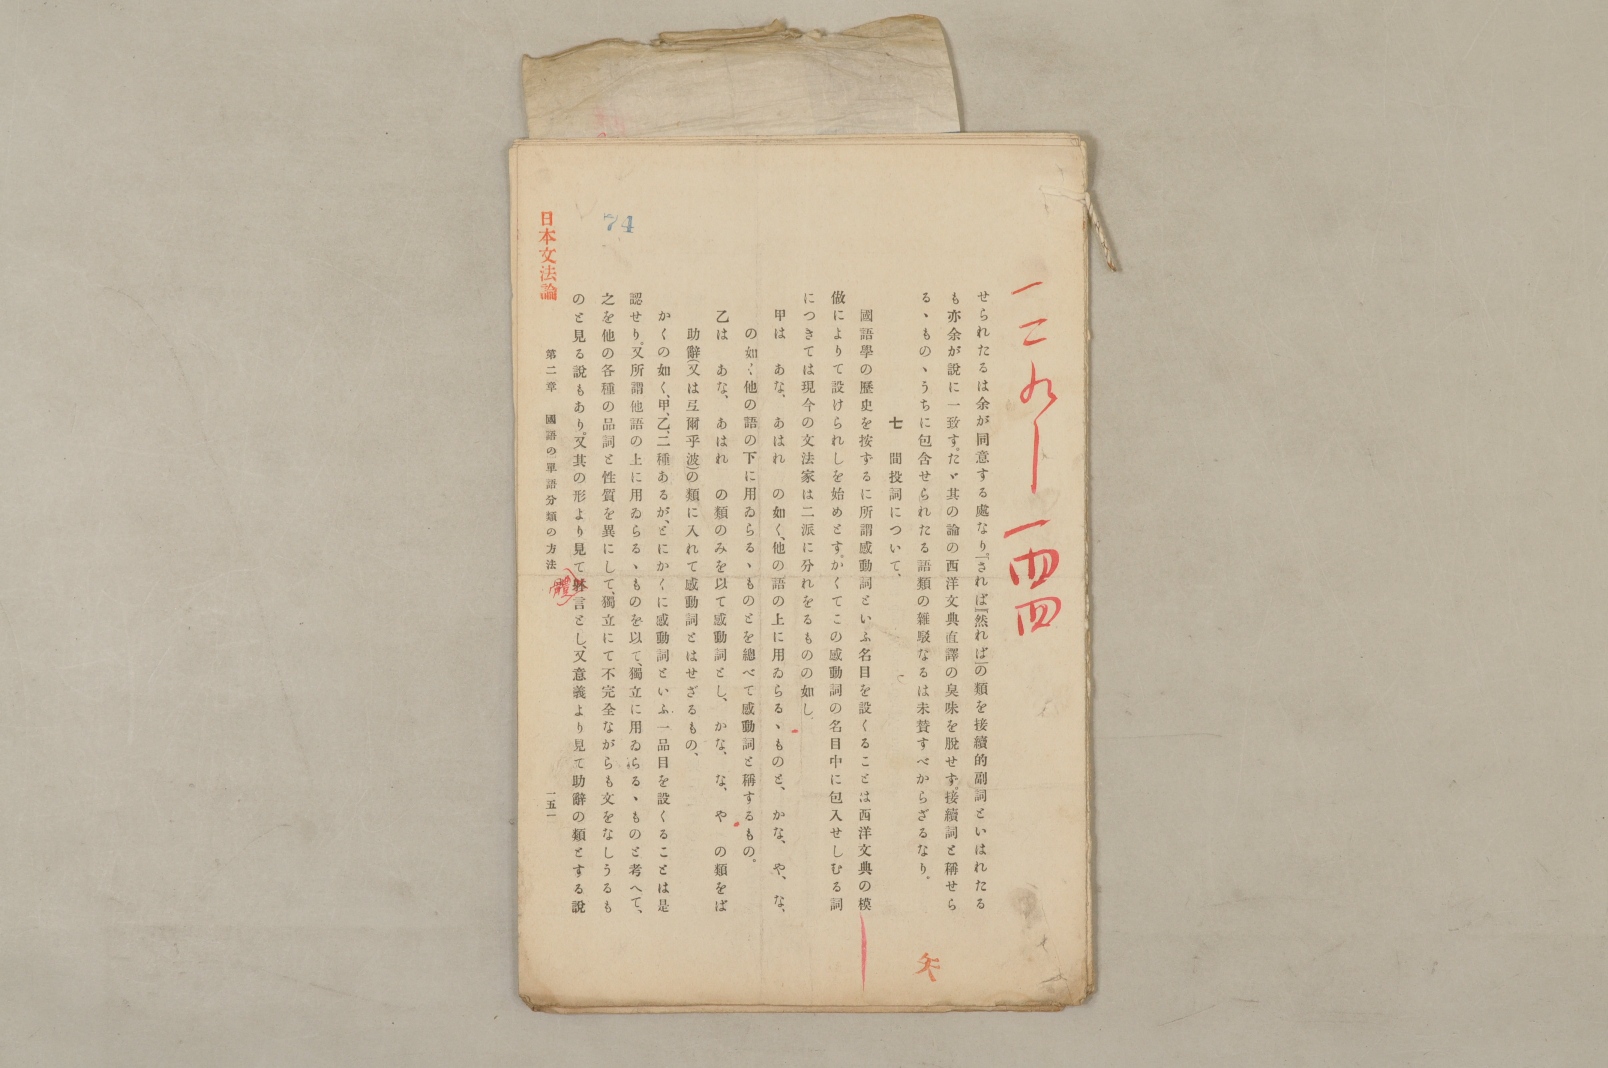 一二九一一四四
せられたるは余が同意する處なり。「されば」「然れば」の類を接續的副詞といはれたる
も亦余が說に一致す。たゞ其の論の西洋文典直譯の臭味を脫せず。接續詞と稱せら
るゝものゝうちに包含せられたる語類の雜駁なるは未賛すべからざるなり。
七 間投詞について、
國語學の歷史を按ずるに所謂感動詞といふ名目を設くることは西洋文典の模
倣によりて設けられしを始めとす。かくてこの感動詞の名目中に包入せしむる詞
につきては現今の文法家は二派に分れをるものの如し
甲は あな、 あはれ の如く、他の語の上に用ゐらるゝものと、 かな、 や、 な、
の如く他の語の下に用ゐらるゝものとを總べて感動詞と稱するもの。
乙は あな、 あはれ の類のみを以て感動詞とし、 かな、 な、 や の類をば
助辭(又は弖爾乎波)の類に入れて感動詞とはせざるもの、
かくの如く、甲、乙、二種あるが、とにかくに感動詞といふ一品目を設くることは是
認せり。又所謂他語の上に用ゐらるゝものを以て、獨立に用ゐらるゝものと考へて、
之を他の各種の品詞と性質を異にして、獨立にて不完全ながらも文をなしうるも
のと見る說もあり。又其の形より見て躰言とし、又意義より見て助辭の類とする說
體
第二章 國語の單語分類の方法 一五一
74
日本文法論
矢